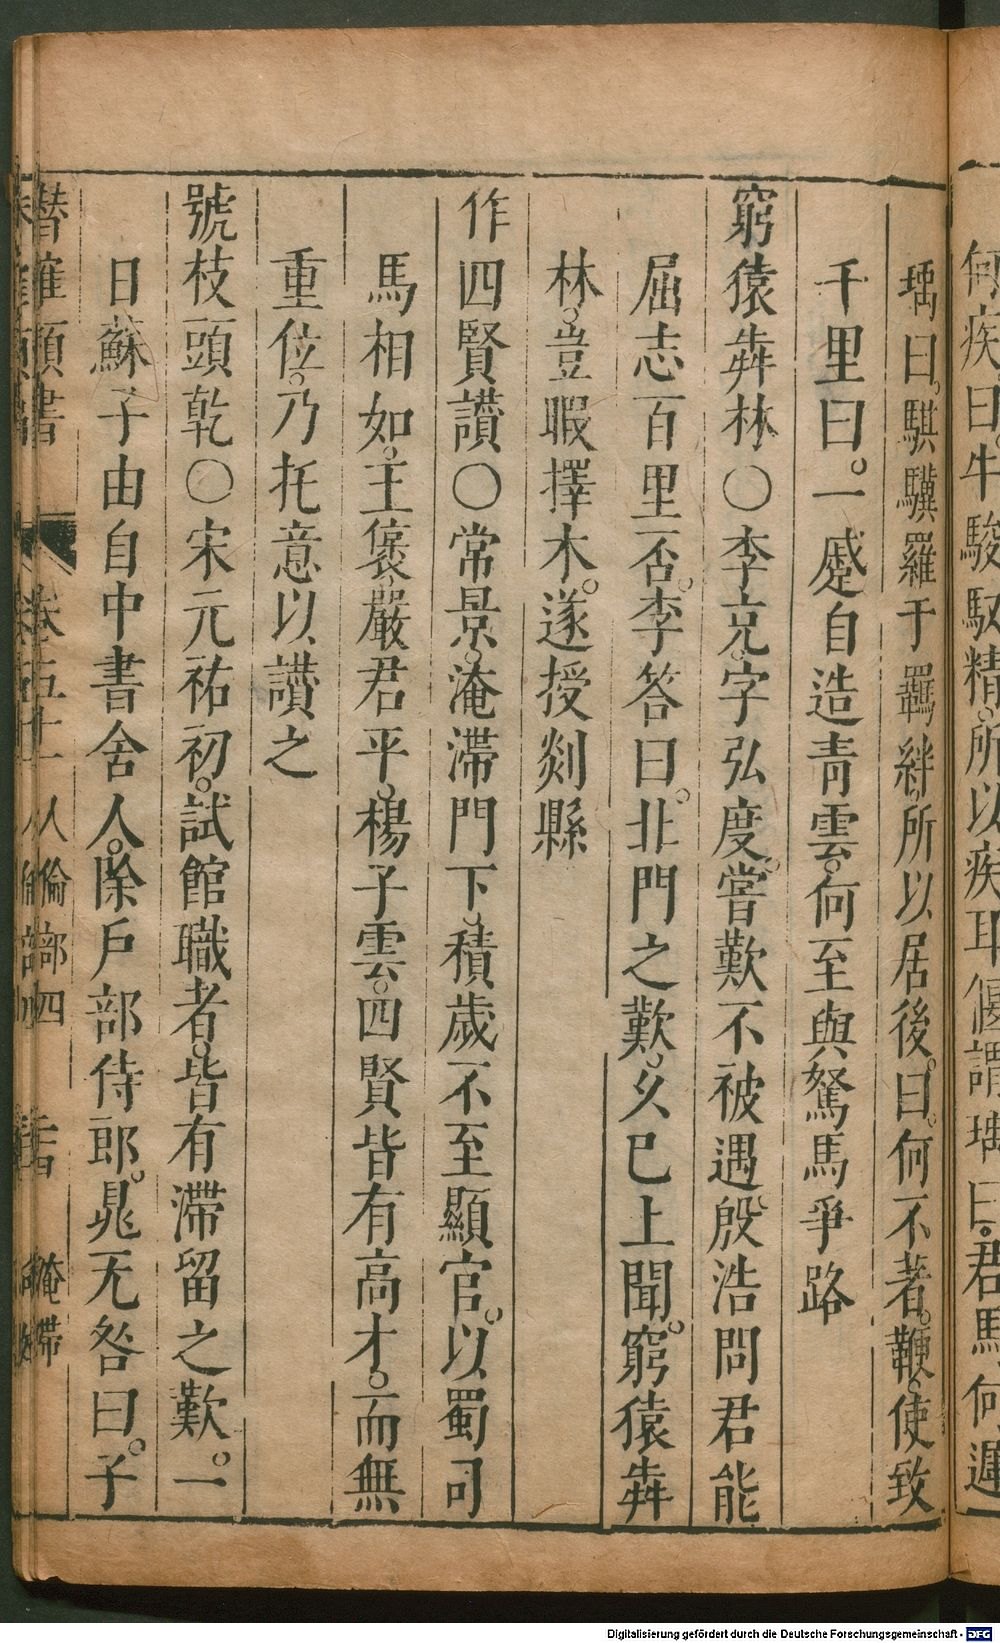 何疾曰牛駿馭精所以疾耳偃謂瑀曰君馬何遲
瑀曰騏驥羅于羈絆所以居後曰何不著鞭使致
千里曰一蹙自造青雲何至與駑馬爭路
窮猿犇林〇李充字弘度嘗歎不被遇殷浩問君能
屈志百里否李答曰北門之歎久巳上聞窮猿犇
林豈暇擇木遂授剡縣
作四賢讚〇常景淹滯門下積歲不至顯官以蜀司
馬相如王褒嚴君平楊子雲四賢皆有高才而無
重位乃托意以讚之
號枝頭乾〇宋元祐初試館職者皆有滯留之歎一
日蘇子由自中書舍人除戶部侍郎晁无咎曰子
卷五十一 人倫部四 淹滯
Digitalisierung gefördert durch die Deutsche Forschungsgemeinschaft - DFG